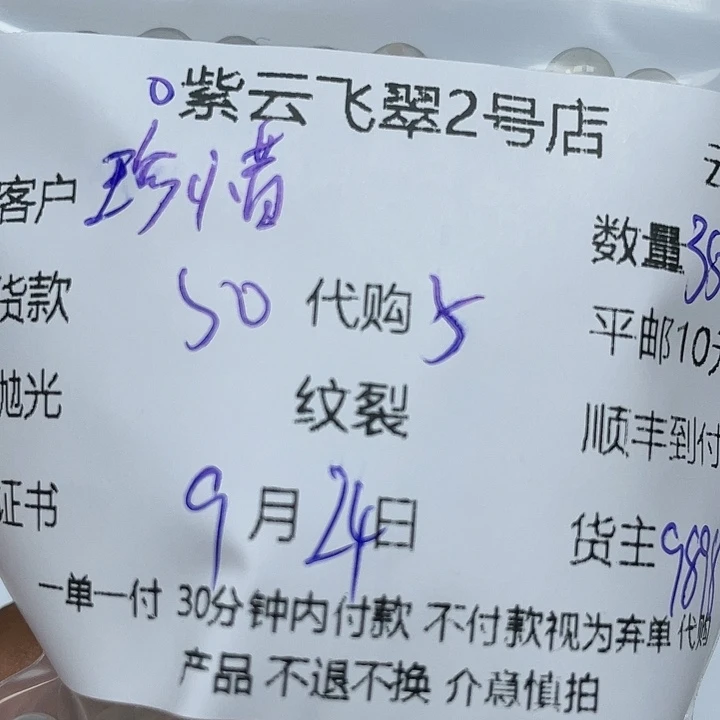 紫云飞翠2号店
客户 珍惜 数量38
货款 50 代购5 平邮10元
抛光 纹裂 顺丰到付
证书 9月24日 货主989
一单一付 30分钟内付款 不付款视为弃单 代购
产品 不退不换 介意慎拍